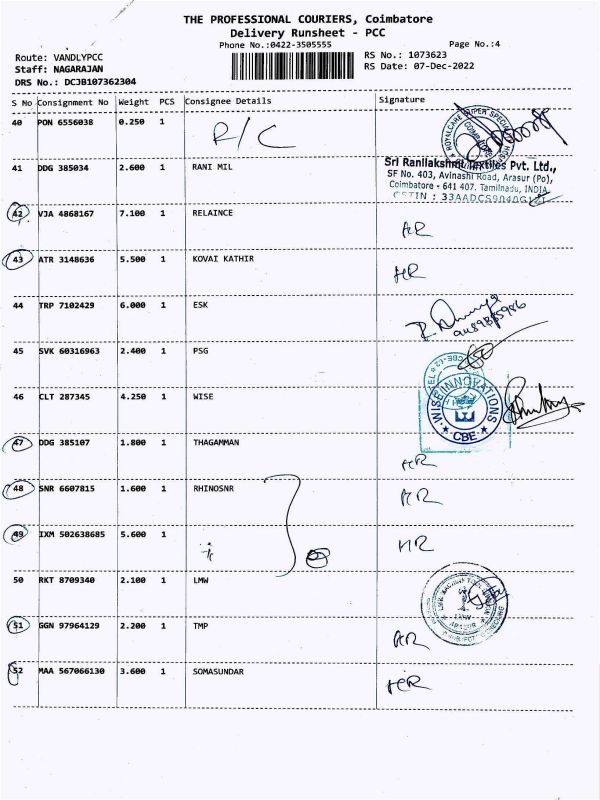 THE PROFESSIONAL COURIERS, Coimbatore
Delivery Runsheet - PCC
Phone No.:0422-3505555
Page No.:4
Route: VANDLYPCC
RS No.: 1073623
Staff: NAGARAJAN
RS Date: 07-Dec-2022
DRS No.: DCJB107362304
S No Consignment No Weight PCS Consignee Details Signature
40 PON 6556038 0.250 1 R/C
41 DDG 385034 2.600 1 RANI MIL
Sri Ranilakshmi Textiles Pvt. Ltd.,
SF No. 403, Avinashi Road, Arasur (Po),
Coimbatore - 641 407. Tamilnadu, INDIA
42 VJA 4868167 7.100 1 RELAINCE
43 ATR 3148636 5.500 1 KOVAI KATHIR
44 TRP 7102429 6.000 1 ESK
45 SVK 60316963 2.400 1 PSG
46 CLT 287345 4.250 1 WISE
WISE INNOVATIONS
CBE
47 DDG 385107 1.800 1 THAGAMMAN
48 SNR 6607815 1.600 1 RHINOSNR
49 IXM 502638685 5.600 1
50 RKT 8709340 2.100 1 LMW
51 GGN 97964129 2.200 1 TMP
52 MAA 567066130 3.600 1 SOMASUNDAR